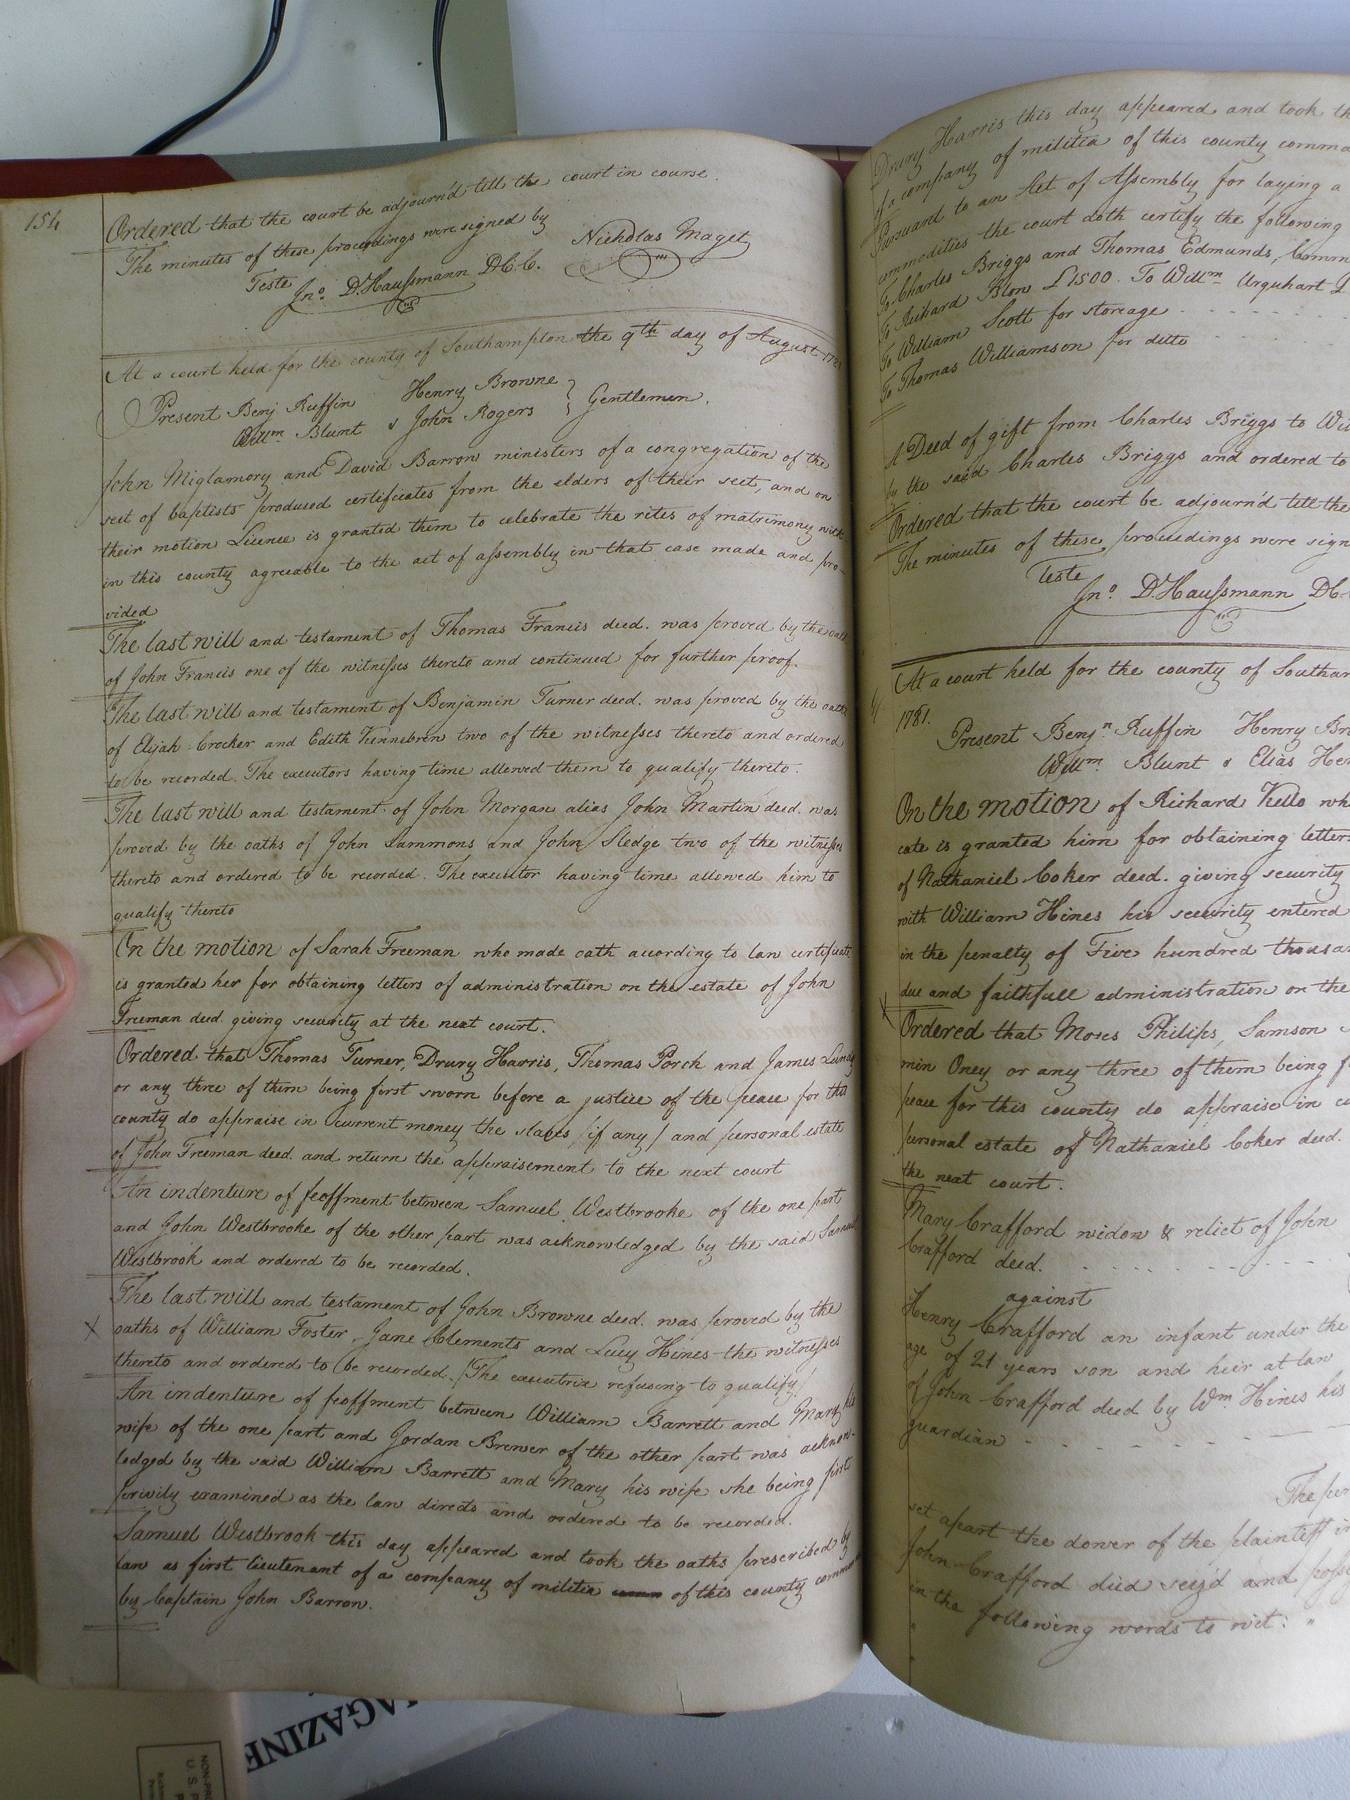 154
Ordered that the court be adjourn'd till the court in course.
The minutes of these proceedings were signed by
Nicholas Maget
Teste
Jno. D. Haussmann DC.C.
At a court held for the county of Southampton the 9th day of August 1781
Present Benj Ruffin Henry Browne
Willm Blunt & John Rogers } Gentlemen.
John Miglamory and David Barrow ministers of a congregation of the
sect of baptists produced certificates from the elders of their sect, and on
their motion Licence is granted them to celebrate the rites of matrimony with
in this county agreeable to the act of assembly in that case made and pro-
vided
The last will and testament of Thomas Francis deed. was proved by the oath
of John Francis one of the witnesses thereto and continued for further proof.
The last will and testament of Benjamin Turner deed. was proved by the oaths
of Elijah Crocker and Edith Kinnebrew two of the witnesses thereto and ordered
to be recorded. The executors having time allowed them to qualify thereto.
The last will and testament of John Morgan alias John Martin deed. was
proved by the oaths of John Lammons and John Sledge two of the witnesses
thereto and ordered to be recorded. The executor having time allowed him to
qualify thereto
On the motion of Sarah Freeman who made oath according to law certificate
is granted her for obtaining letters of administration on the estate of John
Freeman deed. giving security at the next court.
Ordered that Thomas Turner, Drury Harris, Thomas Porch and James Lundy
or any three of them being first sworn before a justice of the peace for this
county do appraise in current money the slaves /if any/ and personal estate
of John Freeman deed. and return the appraisement to the next court
An indenture of feoffment between Samuel Westbrooke of the one part
and John Westbrooke of the other part was acknowledged by the said Samuel
Westbrook and ordered to be recorded.
The last will and testament of John Browne deed. was proved by the
X oaths of William Foster, Jane Clements and Lucy Hines the witnesses
thereto and ordered to be recorded. /The executrix refusing to qualify/
An indenture of feoffment between William Barrett and Mary his
wife of the one part and Jordan Brewer of the other part was acknow-
ledged by the said William Barrett and Mary his wife she being first
privily examined as the law directs and ordered to be recorded.
Samuel Westbrook this day appeared and took the oaths prescribed by
law as first lieutenant of a company of militia of this county comman
by Captain John Barrow.
Drury Harris this day appeared and took th
of a company of militia of this county comma
Pursuant to an Act of Assembly for laying a
commodities the court doth certify the following
To Charles Briggs and Thomas Edmunds, Comm
To Richard Blow £1500. To Willm Urquhart £
To William Scott for storage
To Thomas Williamson for ditto
A Deed of gift from Charles Briggs to Wi
by the said Charles Briggs and ordered to
Ordered that the court be adjourn'd till the
The minutes of these proceedings were sign
Teste
Jno. D. Haussmann DC.
At a court held for the county of Southam
1781.
Present Benjn Ruffin Henry Br
Willm Blunt & Elias Her
On the motion of Richard Kello wh
cate is granted him for obtaining letters
of Nathaniel Coker deed. giving security
with William Hines his security entered
in the penalty of Five hundred thousan
due and faithfull administration on the
X Ordered that Moses Philips, Samson
min Oney or any three of them being f
peace for this county do appraise in c
personal estate of Nathaniel Coker deed.
the next court.
Mary Crafford widow & relict of John
Crafford deed.
against
Henry Crafford an infant under the
age of 21 years son and heir at law
of John Crafford deed by Wm. Hines his
guardian
The
set apart the dower of the plaintiff in
John Crafford died seiz'd and posse
in the following words to wit: "
MAGAZINE
U.S. P